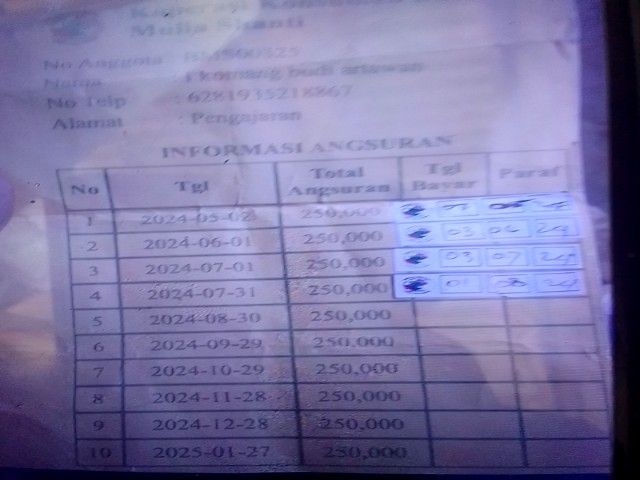 Koperasi Konsumen
Mulia Shanti
No Anggota : BMS00325
Nama : I komang budi artawan
No Telp : 6281935218867
Alamat : Pengajaran
INFORMASI ANGSURAN
No Tgl Total Angsuran Tgl Bayar Paraf
1 2024-05-02 250,000
2 2024-06-01 250,000 03 06 24
3 2024-07-01 250,000 03 07 24
4 2024-07-31 250,000 01 08 24
5 2024-08-30 250,000
6 2024-09-29 250,000
7 2024-10-29 250,000
8 2024-11-28 250,000
9 2024-12-28 250,000
10 2025-01-27 250,000